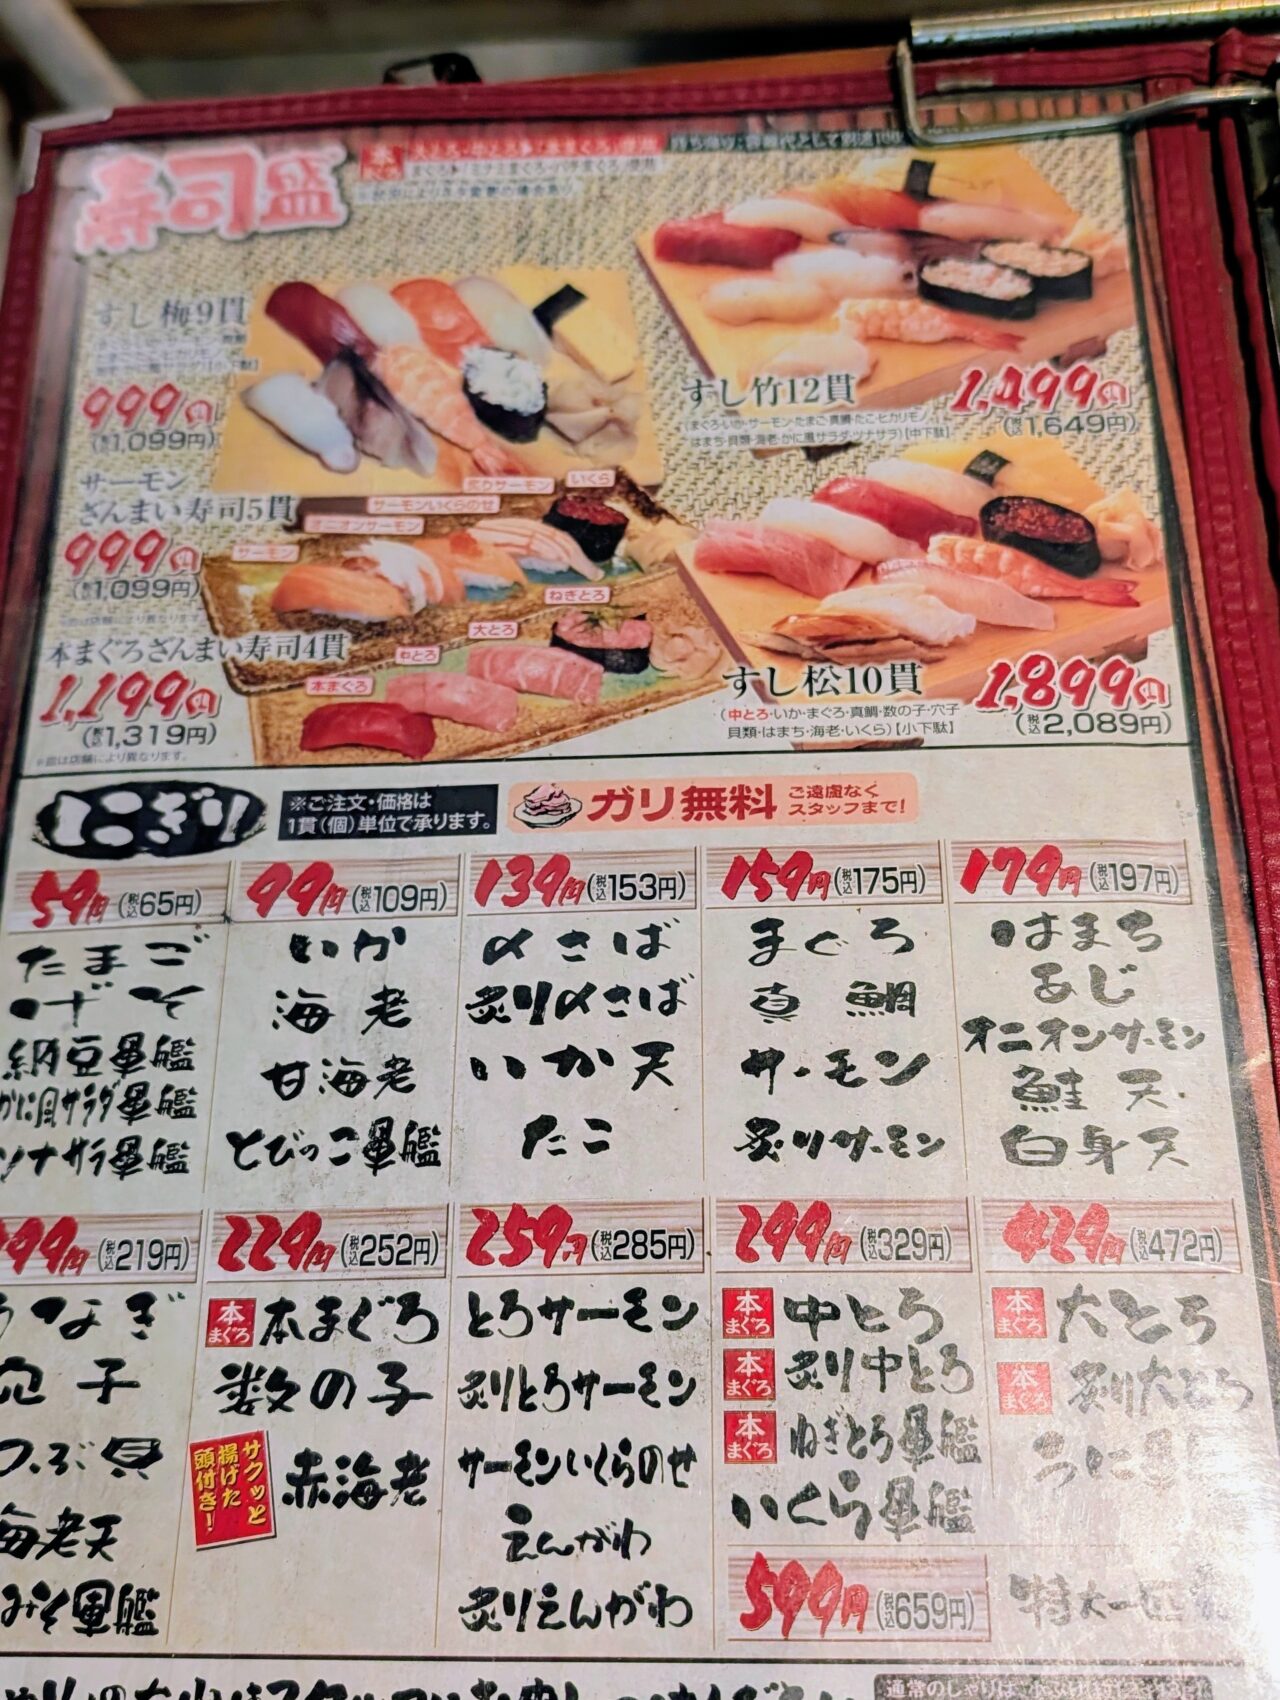 寿司盛
本まぐろ
大とろ・中とろ・「本まぐろ」使用
まぐろ・「ミナミまぐろ・バチまぐろ」使用
すし梅9貫
999円
(税込1,099円)
すし竹12貫
1,499円
(税込1,649円)
(まぐろ・いか・サーモン・たまご・真鯛・たこ・ヒカリモノ
はまち・貝類・海老・かに風サラダ・ツナサラ)【中下駄】
サーモン
ざんまい寿司5貫
999円
(税込1,099円)
※皿は店舗により異なります。
サーモン
オニオンサーモン
サーモンいくらのせ
炙りサーモン
いくら
本まぐろざんまい寿司4貫
1,199円
(税込1,319円)
※皿は店舗により異なります。
本まぐろ
中とろ
大とろ
ねぎとろ
すし松10貫
1,899円
(税込2,089円)
(中とろ・いか・まぐろ・真鯛・数の子・穴子
貝類・はまち・海老・いくら)【小下駄】
にぎり
※ご注文・価格は
1貫(個)単位で承ります。
ガリ無料
ご遠慮なく
スタッフまで!
59円(税込65円)
たまご
げそ
納豆軍艦
かに風サラダ軍艦
ツナサラ軍艦
99円(税込109円)
いか
海老
甘海老
とびっこ軍艦
139円(税込153円)
〆さば
炙り〆さば
いか天
たこ
159円(税込175円)
まぐろ
真鯛
サーモン
炙りサーモン
179円(税込197円)
はまち
あじ
オニオンサーモン
鮭天
白身天
199円(税込219円)
うなぎ
穴子
つぶ貝
海老天
みそ軍艦
229円(税込252円)
本まぐろ 本まぐろ
数の子
赤海老
サクッと
揚げた
頭付き!
259円(税込285円)
とろサーモン
炙りとろサーモン
サーモンいくらのせ
えんがわ
炙りえんがわ
299円(税込329円)
本まぐろ 中とろ
本まぐろ 炙り中とろ
本まぐろ ねぎとろ軍艦
いくら軍艦
429円(税込472円)
本まぐろ 大とろ
本まぐろ 炙り大とろ
うに軍艦
599円(税込659円)
特大一匹
通常のしゃりは